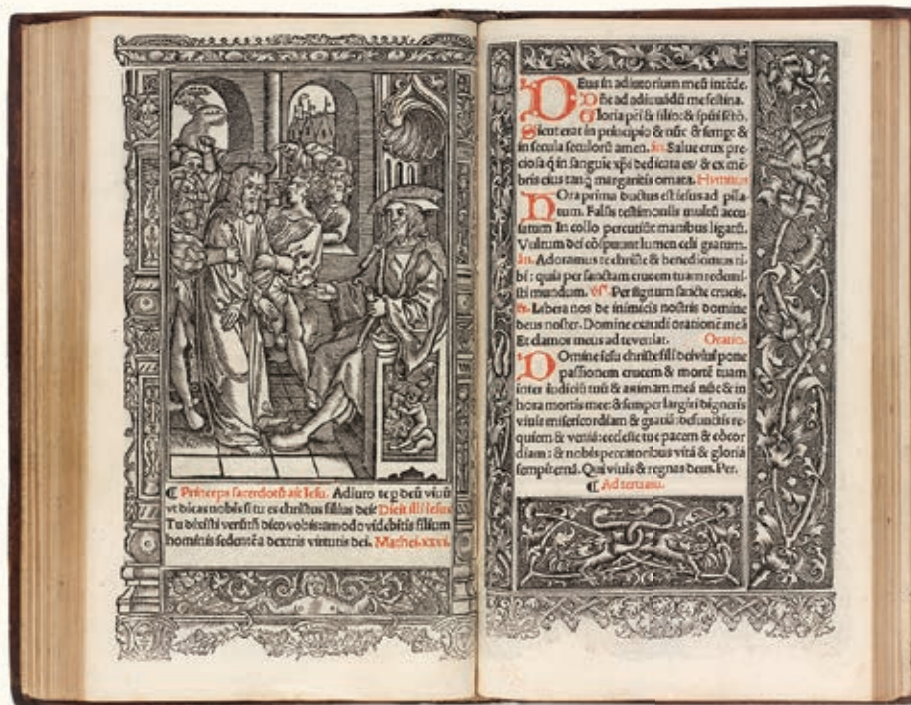 ¶ Princeps sacerdotū ait Iesu. Adiuro te ꝑ deū viuū
vt dicas nobis si tu es christus filius dei: Dicit illi Iesus
Tu dixisti verūtn̄ dico vobis: amodo videbitis filium
hominis sedentē a dextris virtutis dei. Mathei. xxvi.
DEus in adiutorium meū intēde.
Dn̄e ad adiuuādū me festina.
Gloria pr̄i & filio: & spūi scto.
Sicut erat in principio & nūc & semp: &
in secula seculorū amen. Salue crux pre
ciosa q̄ in sanguīe xp̄i dedicata es/ & ex mē
bris eius tanq̄ margaritis ornata. Hymnus
HOra prima ductus est iesus ad pila
tum. Falsis testimoniis multū accu
satum In collo percutiūt manibus ligatū.
Vultum dei cōspuunt lumen celi gratum.
Añ. Adoramus te christe & benedicimus ti
bi: quia per sanctam crucem tuam redemi
sti mundum. Per signum sancte crucis.
Libera nos de inimicis nostris domine
deus noster. Domine exaudi orationē meā
Et clamor meus ad te veniat. Oratio.
DOmine iesu christe fili dei viui pone
passionem crucem & mortē tuam
inter iudiciū tuū & animam meā nūc & in
hora mortis mee: & semper largiri digneris
viuis misericordiam & gratiā: defunctis re
quiem & veniā: ecclesie tue pacem & cōcor
diam: & nobis peccatoribus vitā & gloriā
sempiternā. Qui viuis & regnas deus. Per.
¶ Ad tertiam.